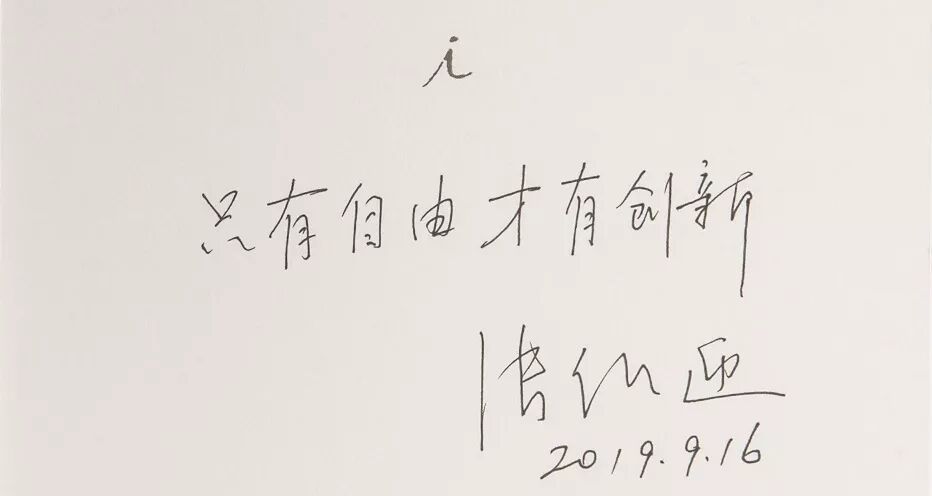 i
只有自由才有创新
张维迎
2019.9.16